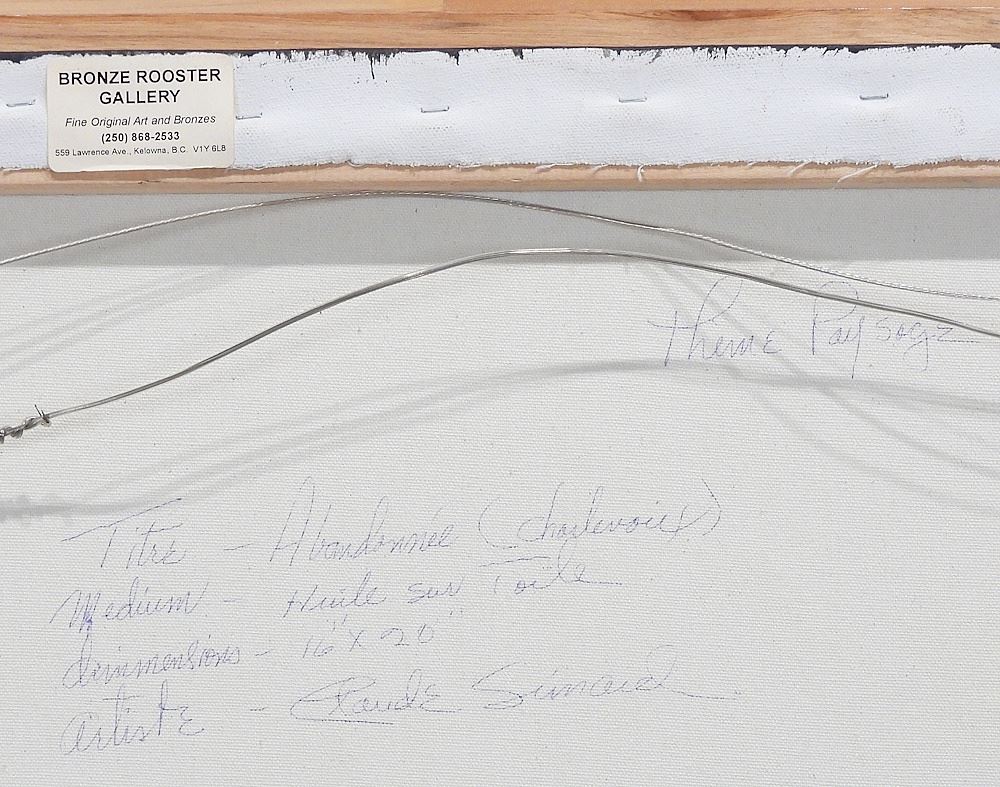 BRONZE ROOSTER
GALLERY
Fine Original Art and Bronzes
(250) 868-2533
559 Lawrence Ave., Kelowna, B.C. V1Y 6L8
Theme Paysage
Titre - Abandonnée (Charlevoix)
Medium - Huile sur Toile
dimmensions - 16" x 20"
artiste - Claude Simard